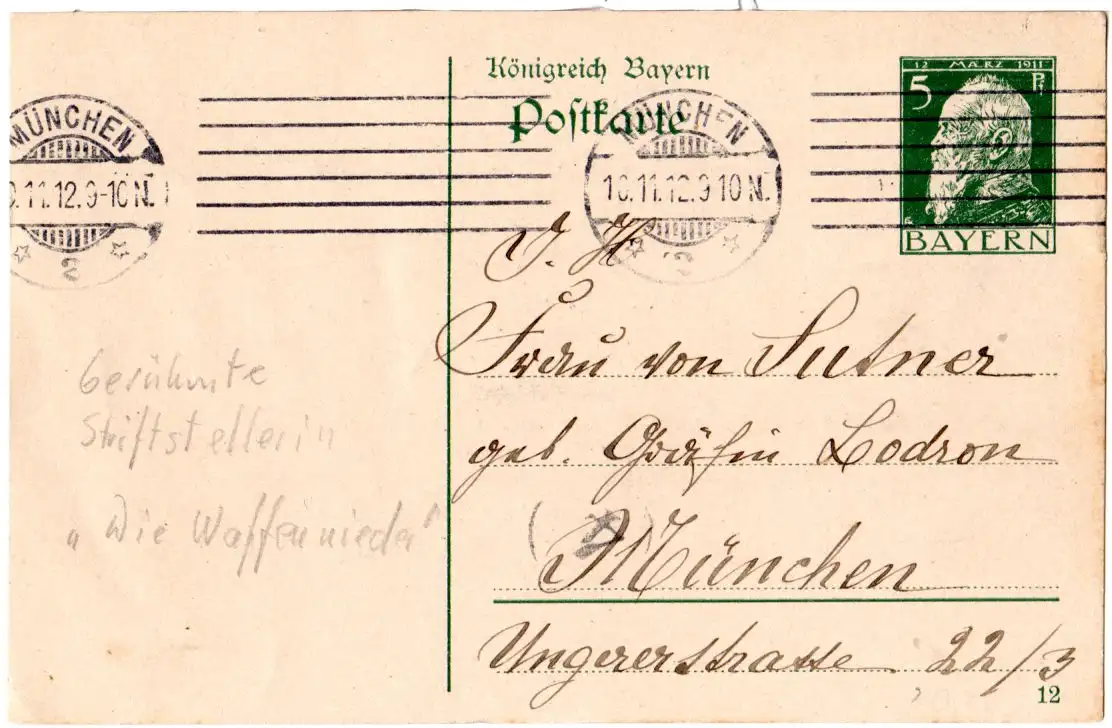 12 MÆRZ 1911
5 Pf
BAYERN
Königreich Bayern
Postkarte
MÜNCHEN
.11.12.9-10 N.
2
MÜNCHEN
10.11.12.9 10 N.
2
I. H.
Frau von Sutner
geb. Gräfin Lodron
München
Ungererstrasse 22/3
12
berühmte
Striftstellerin
„Die Waffen nieder"